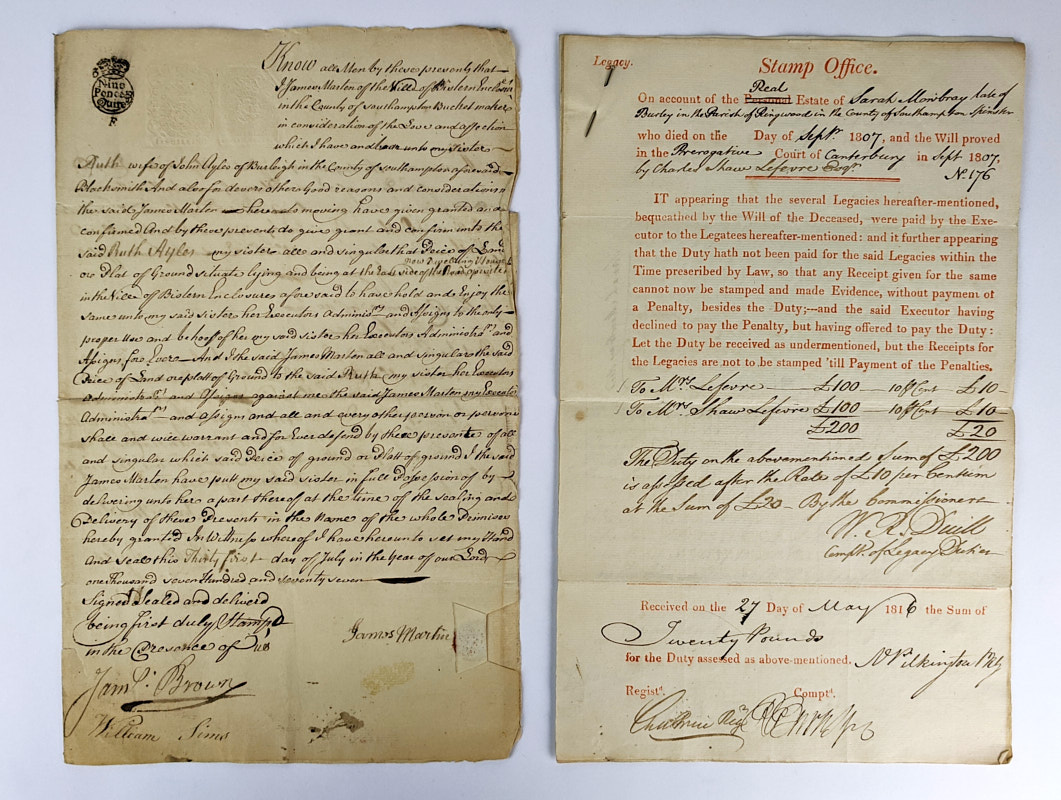 Nine
Pence
Quire
F
Know all Men by these presents that
I James Marten of the Vill of Bistern Enclosures
in the County of Southampton Bucket maker
in consideration of the Love and affection
which I have and bare unto my sister
Ruth wife of John Ayles of Burleigh in the County of Southampton aforesaid
Blacksmith And also for divers other Good reasons and considerations
the said James Marten hereunto moving have given granted and
confirmed And by these presents do give grant and confirm unto the
said Ruth Ayles my sister all and singular that Peice of Land
now Dwelling House
or Plot of Ground Scituate lying and being at the side of the Road
in the Ville of Bistern Enclosures aforesaid to have hold and Enjoy the
same unto my said sister her Executors Administrs and Assigns to the only
proper Use and behoof of her my said sister her Executors Administrars and
Assigns for Ever And I the said James Marten all and singular the said
Peice of Land or plott of Ground to the said Ruth my sister her Executors
Administrars and Assigns against me the said James Marten my Executors
Administrars and assigns and all and every other person or persons
shall and will warrant and for Ever defend by these presents of all
and singular which said Peice of ground or Plott of ground I the said
James Marten have put my said sister in full Possession of by
delivering unto her a part thereof at the time of the sealing and
Delivery of these Presents in the Name of the whole Primises
hereby granted In Witness whereof I have hereunto set my Hand
and seal this Thirty first day of July in the Year of our Lord
one Thousand seven Hundred and seventy seven
Signed Sealed and deliverd
being first duly Stamp'd
in the Presence of us
James Martin
Jams. Brown
William Sims
Legacy.
Stamp Office.
Real
On account of the Personal Estate of Sarah Mowbray late of
Burley in the Parish of Ringwood in the County of Southampton Spinster
who died on the Day of Septr. 1807, and the Will proved
in the Prerogative Court of Canterbury in Sept 1807.
by Charles Shaw Lefevre Esqr. No. 176
IT appearing that the several Legacies hereafter-mentioned,
bequeathed by the Will of the Deceased, were paid by the Exe-
cutor to the Legatees hereafter-mentioned: and it further appearing
that the Duty hath not been paid for the said Legacies within the
Time prescribed by Law, so that any Receipt given for the same
cannot now be stamped and made Evidence, without payment of
a Penalty, besides the Duty;---and the said Executor having
declined to pay the Penalty, but having offered to pay the Duty:
Let the Duty be received as undermentioned, but the Receipts for
the Legacies are not to be stamped 'till Payment of the Penalties.
1 To Mrs Lefevre £100 10 p Cent £10
1 To Mrs Shaw Lefevre £100 10 p Cent £10
£200 £20
The Duty on the abovementioned Sum of £200
is assessed after the Rate of £10 per Centum
at the Sum of £20 - By the Commissioners
W. R.
Compt. of Legacy Duties
Received on the 27 Day of May 1816 the Sum of
Twenty Pounds
for the Duty assessed as above-mentioned. Pilkington
Registr. Comptr.